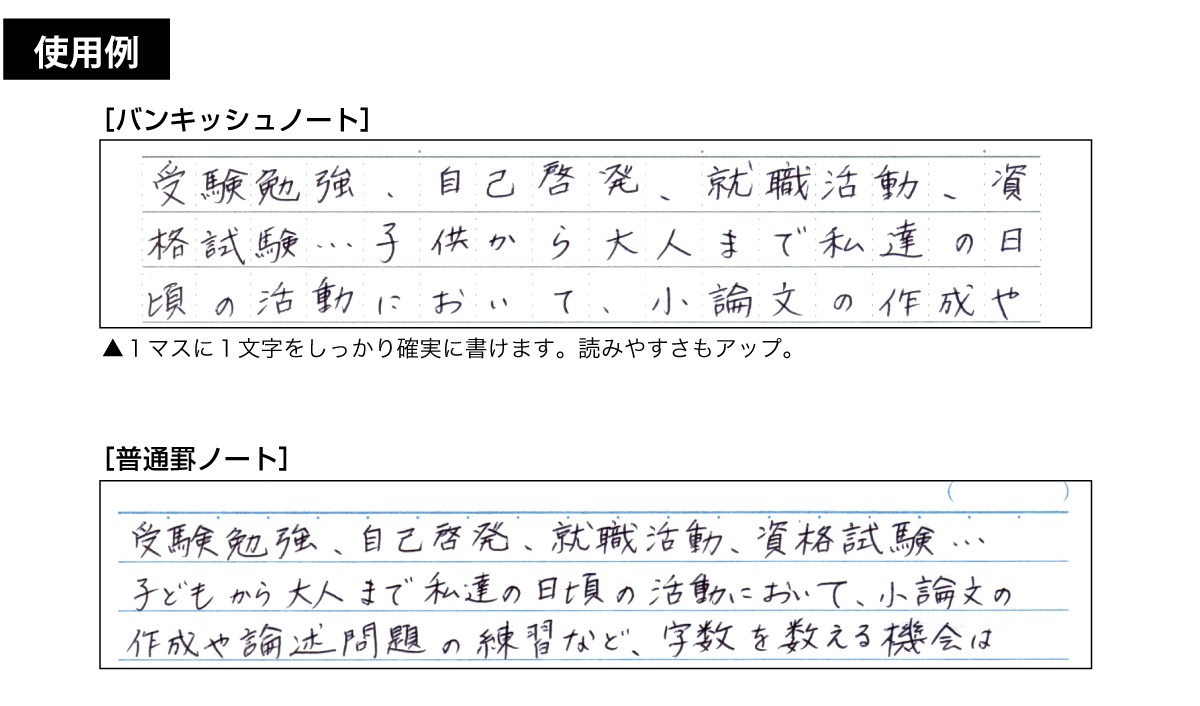 使用例
[バンキッシュノート]
受験勉強、自己啓発、就職活動、資
格試験…子供から大人まで私達の日
頃の活動において、小論文の作成や
▲1マスに1文字をしっかり確実に書けます。読みやすさもアップ。
[普通罫ノート]
( )
受験勉強、自己啓発、就職活動、資格試験…
子どもから大人まで私達の日頃の活動において、小論文の
作成や論述問題の練習など、字数を数える機会は